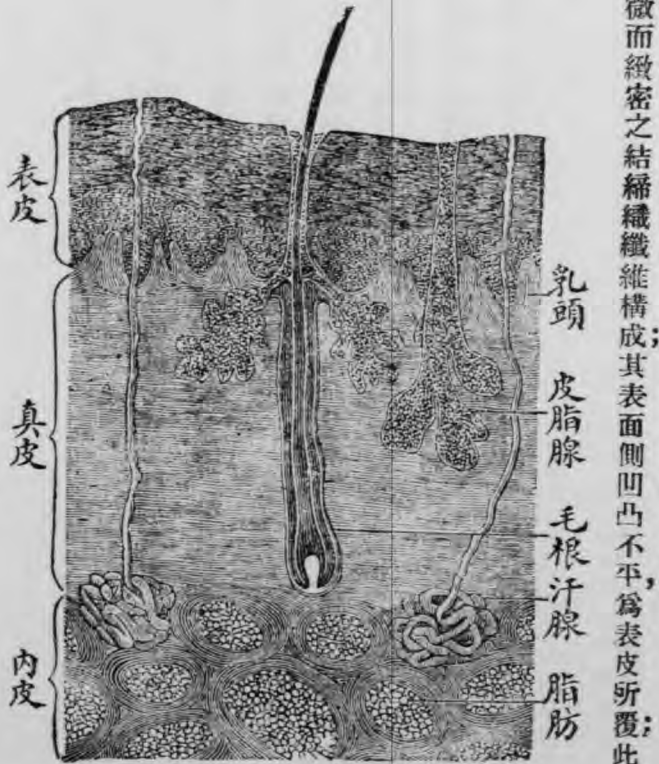 微而緻密之結締織纖維構成;其表面側凹凸不平,為表皮所覆;此
乳頭
皮脂腺
毛根
汗腺
脂肪
表皮
真皮
內皮